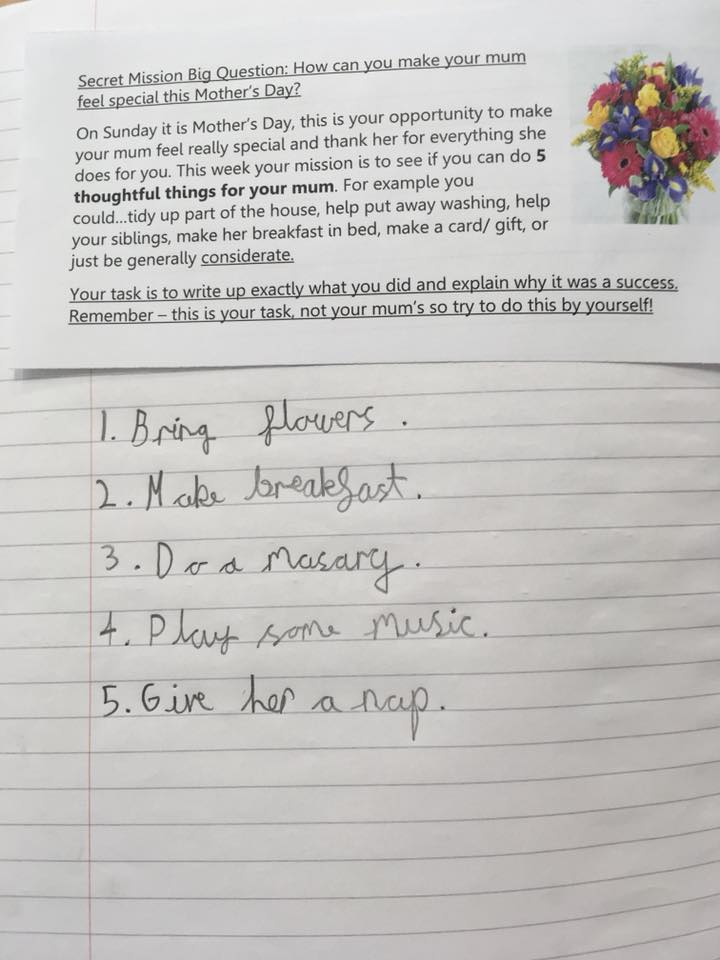 Secret Mission Big Question: How can you make your mum
feel special this Mother's Day?
On Sunday it is Mother's Day, this is your opportunity to make
your mum feel really special and thank her for everything she
does for you. This week your mission is to see if you can do 5
thoughtful things for your mum. For example you
could...tidy up part of the house, help put away washing, help
your siblings, make her breakfast in bed, make a card/ gift, or
just be generally considerate.
Your task is to write up exactly what you did and explain why it was a success.
Remember – this is your task, not your mum's so try to do this by yourself!
1. Bring flowers.
2. Make breakfast.
3. Do a masarg.
4. Play some music.
5. Give her a nap.